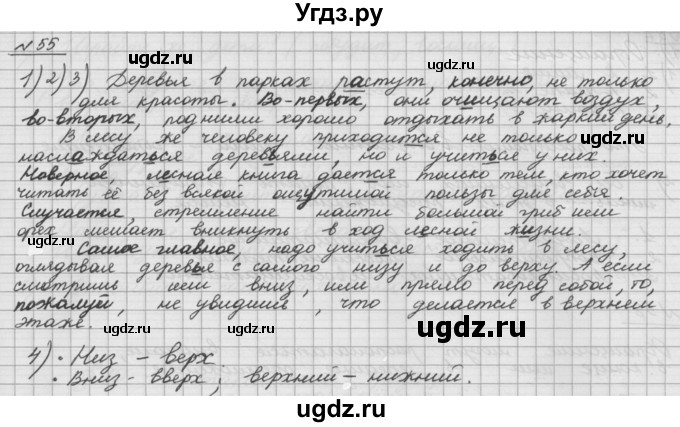 Угдз.ру
№55
1)2)3) Деревья в парках растут, конечно, не только
для красоты. Во-первых, они очищают воздух,
во-вторых, под ними хорошо отдыхать в жаркий день.
В лесу же человеку приходится не только
наслаждаться деревьями, но и учиться у них.
Наверное, лесная книга даётся только тем, кто хочет
читать её без всякой ощутимой пользы для себя.
Случается, стремление найти большой гриб или
орех мешает вникнуть в ход лесной жизни.
Самое главное, надо учиться ходить в лесу,
оглядывая деревья с самого низу и до верху. А если
смотришь или вниз, или прямо перед собой, то,
пожалуй, не увидишь, что делается в верхнем
этаже.
4) • Низ – верх.
• Вниз – вверх; верхний – нижний.
ugdz.ru
ugdz.ru
ugdz.ru
ugdz.ru
ugdz.ru
ugdz.ru
ugdz.ru
ugdz.ru
ugdz.ru
ugdz.ru
ugdz.ru
ugdz.ru
ugdz.ru